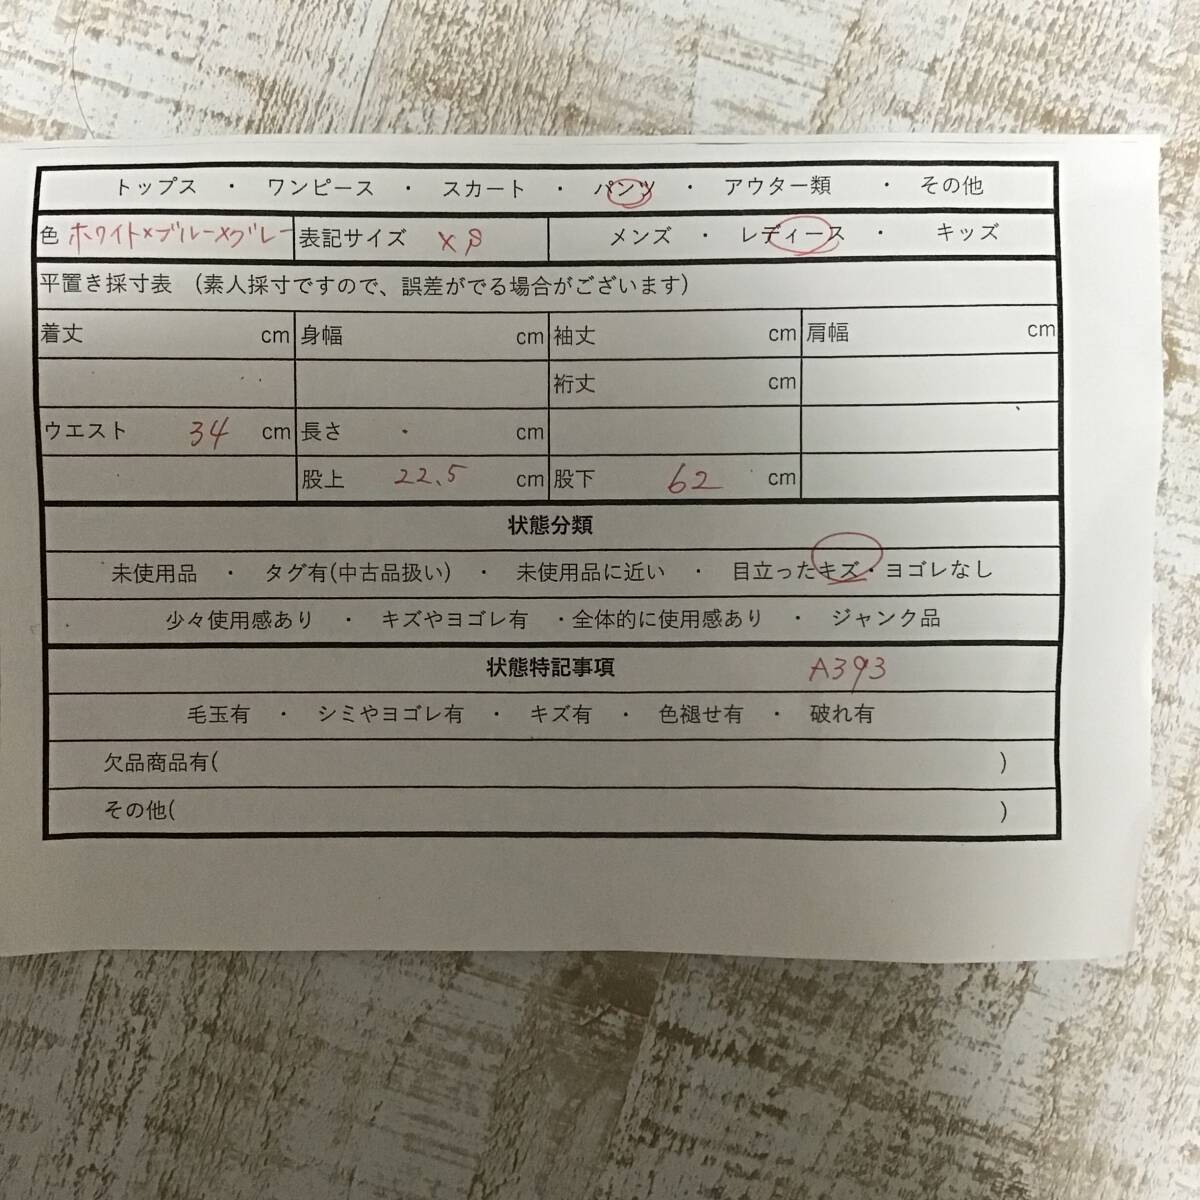 トップス ・ ワンピース ・ スカート ・ パンツ ・ アウター類 ・ その他
色 ホワイト×ブルー×グレー 表記サイズ XS メンズ ・ レディース ・ キッズ
平置き採寸表 (素人採寸ですので、誤差がでる場合がございます)
着丈 cm 身幅 cm 袖丈 cm 肩幅 cm
裄丈 cm
ウエスト 34 cm 長さ cm
股上 22.5 cm 股下 62 cm
状態分類
未使用品 ・ タグ有(中古品扱い) ・ 未使用品に近い ・ 目立ったキズ・ヨゴレなし
少々使用感あり ・ キズやヨゴレ有 ・全体的に使用感あり ・ ジャンク品
状態特記事項 A393
毛玉有 ・ シミやヨゴレ有 ・ キズ有 ・ 色褪せ有 ・ 破れ有
欠品商品有( )
その他( )